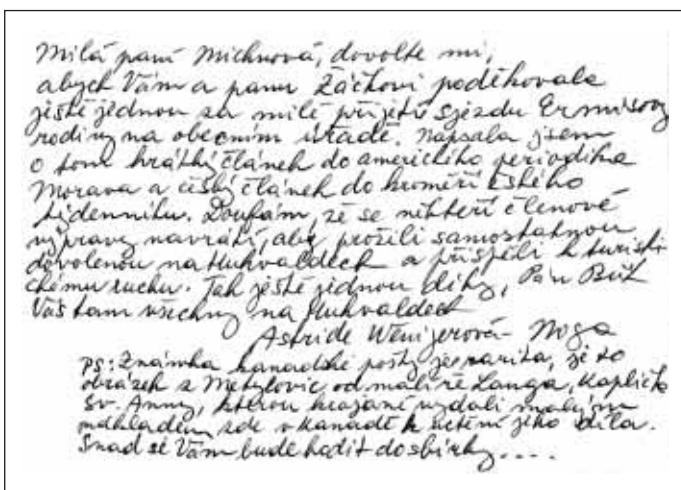 Milá paní Michnová, dovolte mi,
abych Vám a panu Žáčkovi poděkovala
ještě jednou za milé přijetí sjezdu Ermisovy
rodiny na obecním úřadě. Napsala jsem
o tom krátký článek do amerického periodika
Morava a český článek do kroměřížského
týdenníku. Doufám, že se někteří členové
výpravy navrátí, aby prožili samostatnou
dovolenou na Hukvaldech a přispěli k turisti
ckému ruchu. Tak ještě jednou díky, Pán Bůh
Vás tam všechny na Hukvaldech
Astride Noga
PS: Známka kanadské pošty je rarita, je to
obrázek z Metylovic od malíře Langa, Kaplička
Sv. Anny, kterou krajané vydali malým
nákladem zde v Kanadě k uctění jeho díla.
Snad se Vám bude hodit do sbírky....